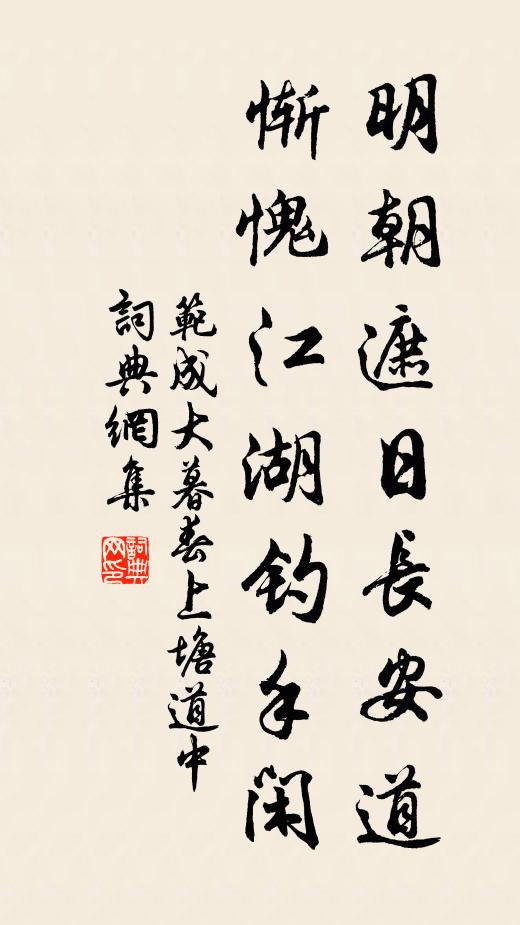 明朝遮日長安道
慚愧江湖釣手閑
範成大暮春上塘道中
詞典網集
詞典网印